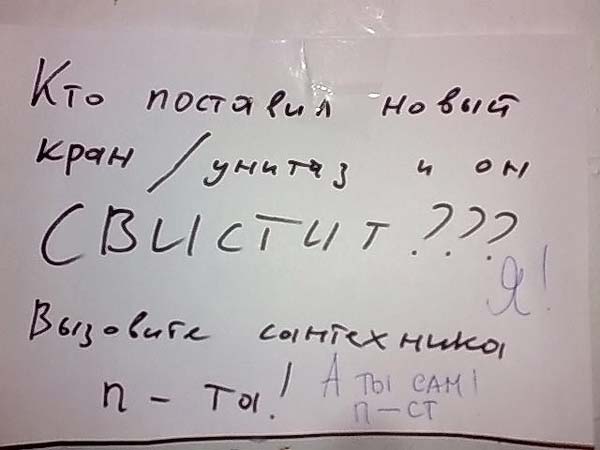 Кто поставил новый
кран/унитаз и он
СВИСТИТ???
Я!
Вызовите сантехника
п-ты!
А ТЫ САМ!
П-СТ